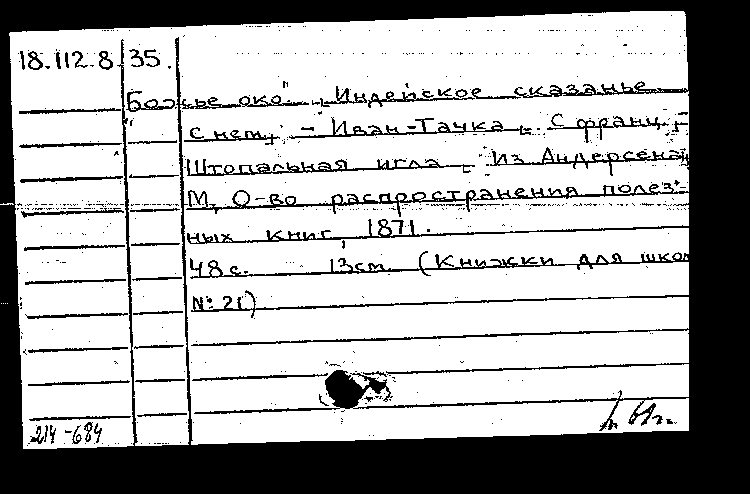 18.112.8.35.
"Божье око". Индейское сказанье
с нем. - Иван-Тачка. С франц. -
Штопальная игла. Из Андерсена.
М, О-во распространения полез-
ных книг, 1871.
48с. 13см (Книжки для школ
№ 21)
214-684
69г.